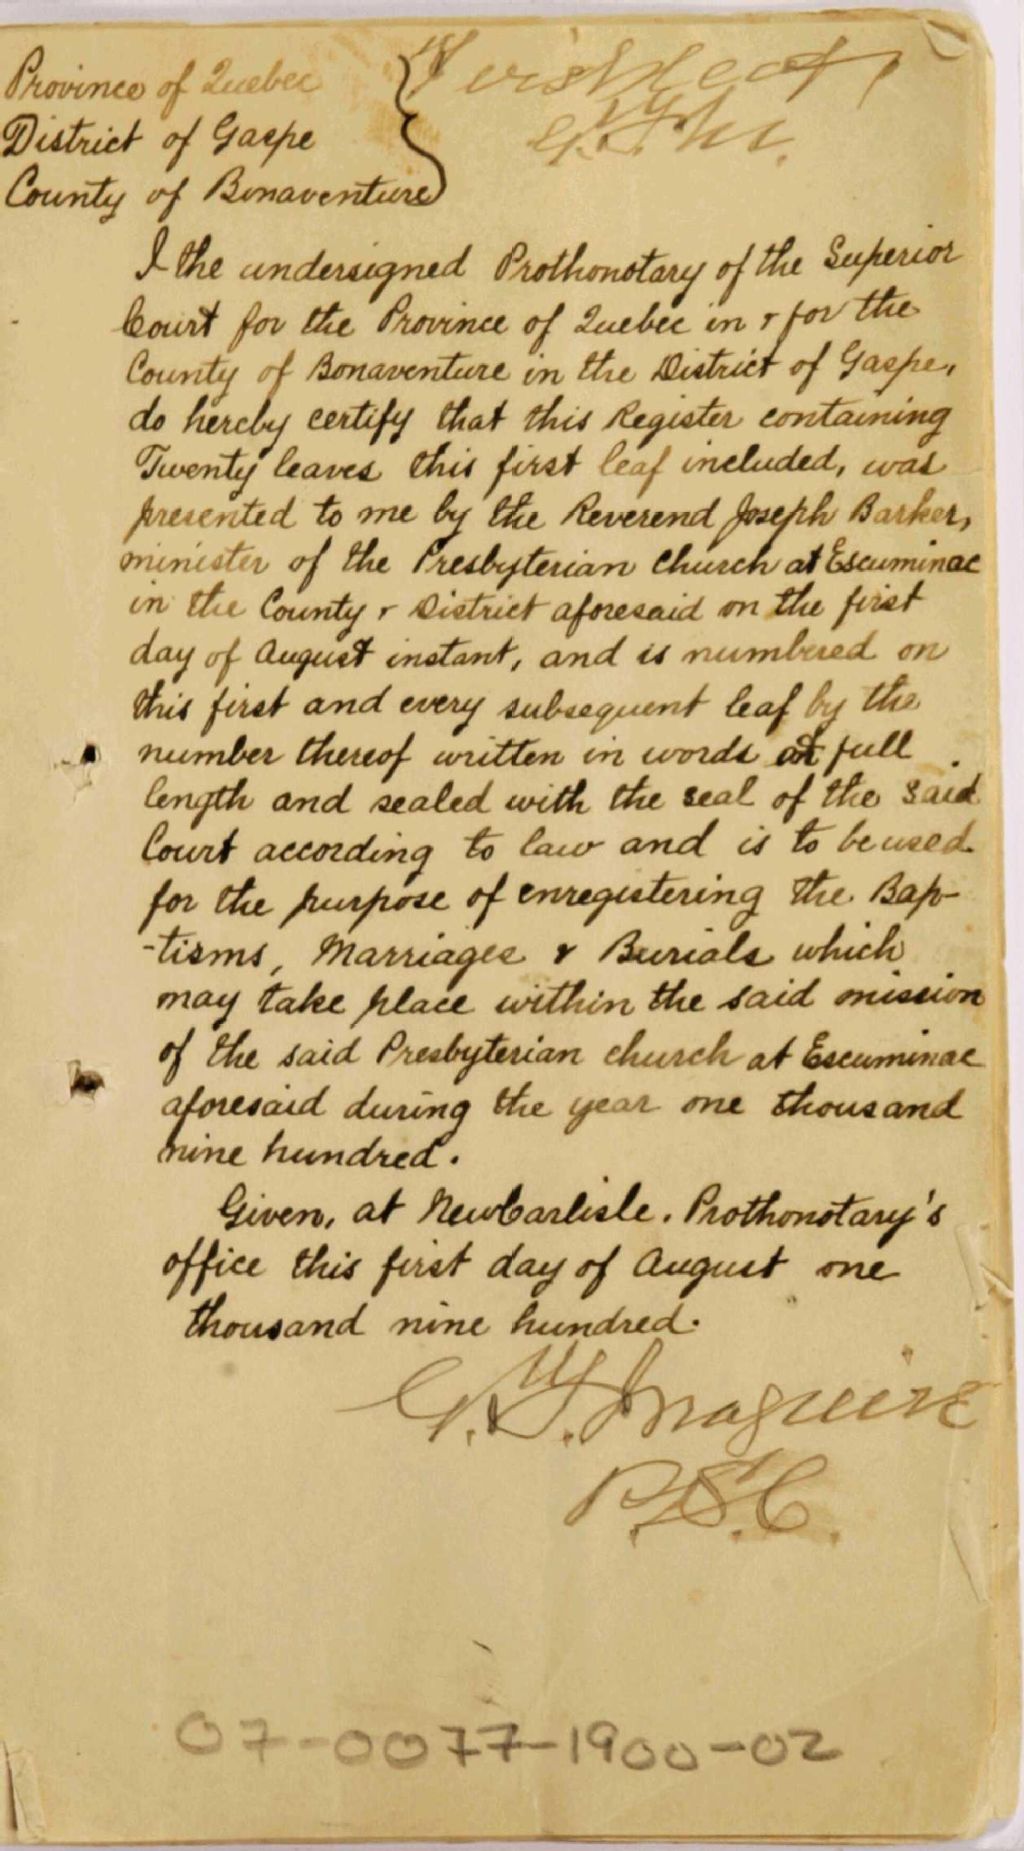 Province of Quebec
District of Gaspe
County of Bonaventure
First leaf
I the undersigned Prothonotary of the Superior
Court for the Province of Quebec in & for the
County of Bonaventure in the District of Gaspe,
do hereby certify that this Register containing
Twenty leaves this first leaf included, was
presented to me by the Reverend Joseph Barker,
minister of the Presbyterian Church at Escuminac
in the County & District aforesaid on the first
day of August instant, and is numbered on
this first and every subsequent leaf by the
number thereof written in words at full
length and sealed with the seal of the said
Court according to law and is to be used
for the purpose of enregistering the Bap-
-tisms, Marriages & Burials which
may take place within the said mission
of the said Presbyterian church at Escuminac
aforesaid during the year one thousand
nine hundred.
Given, at New Carlisle, Prothonotary's
office this first day of August one
thousand nine hundred.
Maguire
P.S.C.
07-0077-1900-02